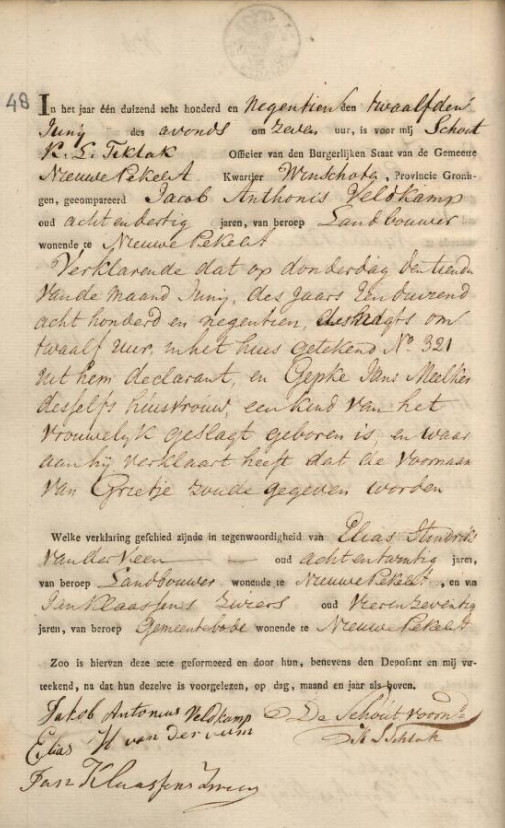 48
In het jaar één duizend acht honderd en Negentien den twaalfden
Junij des avonds om zeven uur, is voor mij Schout
Officier van den Burgerlijken Staat van de Gemeente
Nieuwe Pekela Kwartier Winschoten, Provincie Gronin-
gen, gecompareerd Jacob Anthonis Veldkamp
oud acht en dertig jaren, van beroep Landbouwer
wonende te Nieuwe Pekela
Verklarende dat op donderdag den tienden
van de maand Junij, des Jaars Een duizend
acht honderd en negentien, des nagts om
twaalf uur, in het huis getekend No. 321
uit hem declarant, en Gepke Jans Meelker
desselfs huisvrouw, een kind van het
vrouwelijk geslagt geboren is, en waar
aan hij verklaart heeft dat de voornaam
van Grietje zoude gegeven worden
Welke verklaring geschied zijnde in tegenwoordigheid van Elias Hendriks
van der Veen oud acht en twintig jaren,
van beroep Landbouwer wonende te Nieuwe Pekela, en van
Jan Klaassens oud vier en zeventig
jaren, van beroep Gemeentebode wonende te Nieuwe Pekela
Zoo is hiervan deze acte geformeerd en door hun, benevens den Deposant en mij ge-
teekend, na dat hun dezelve is voorgelezen, op dag, maand en jaar als boven.
Jakob Antonius Veldkamp De Schout voorn.
Elias H van der
Jan Klaassens